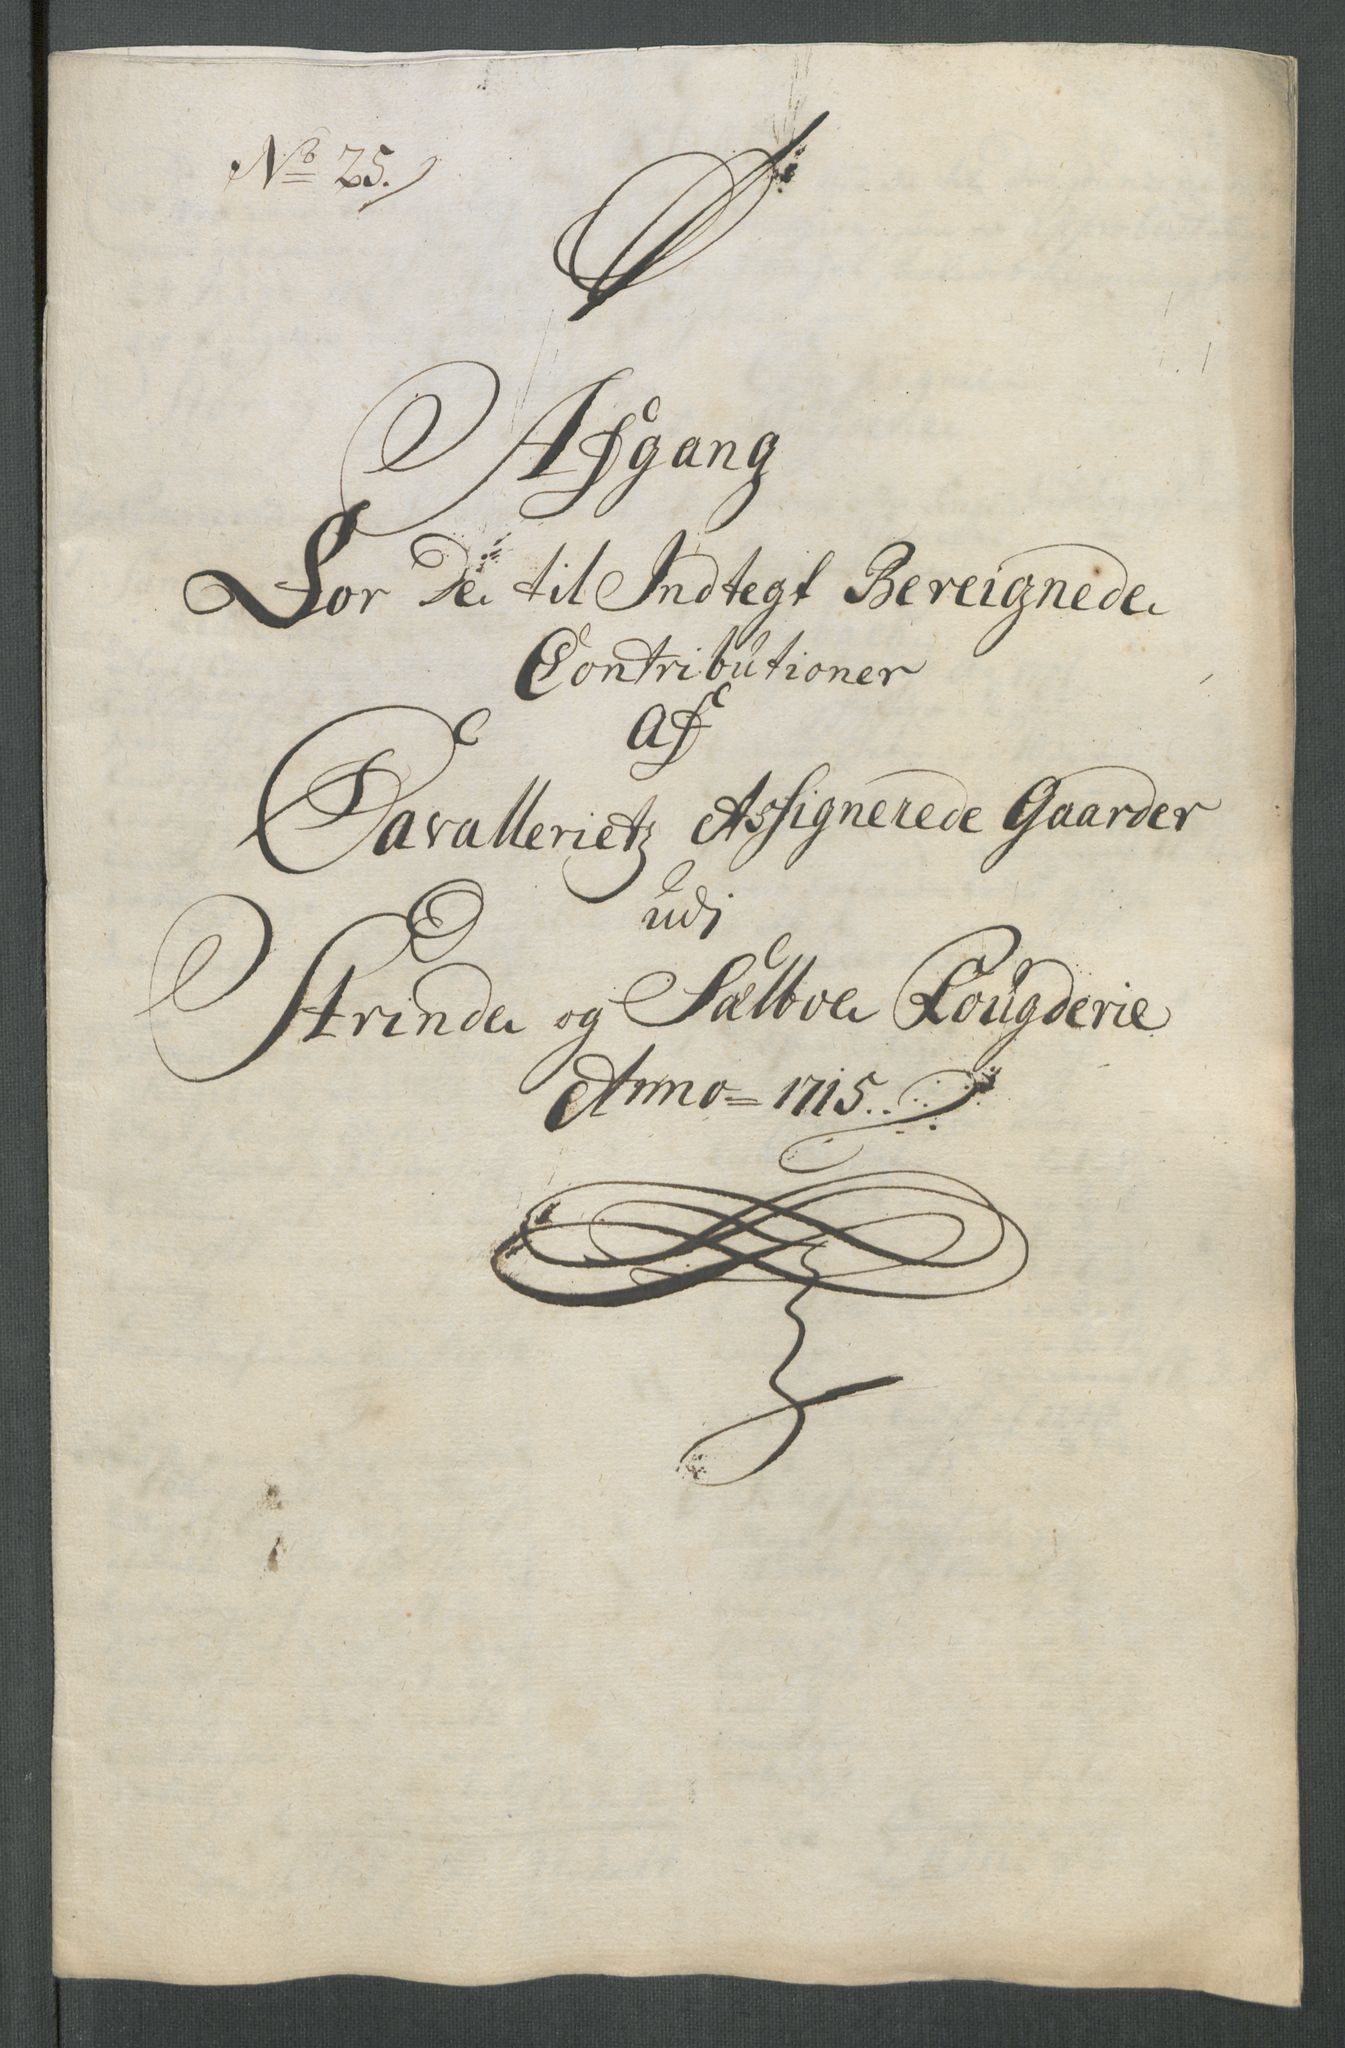 No 25.
Afgang
For De til Indtegt Bereignede
Contributioner
Af
Cavallerietz Assignerede Gaarder
udi
Strinde og Sælboe Fougderie
Anno = 1715.